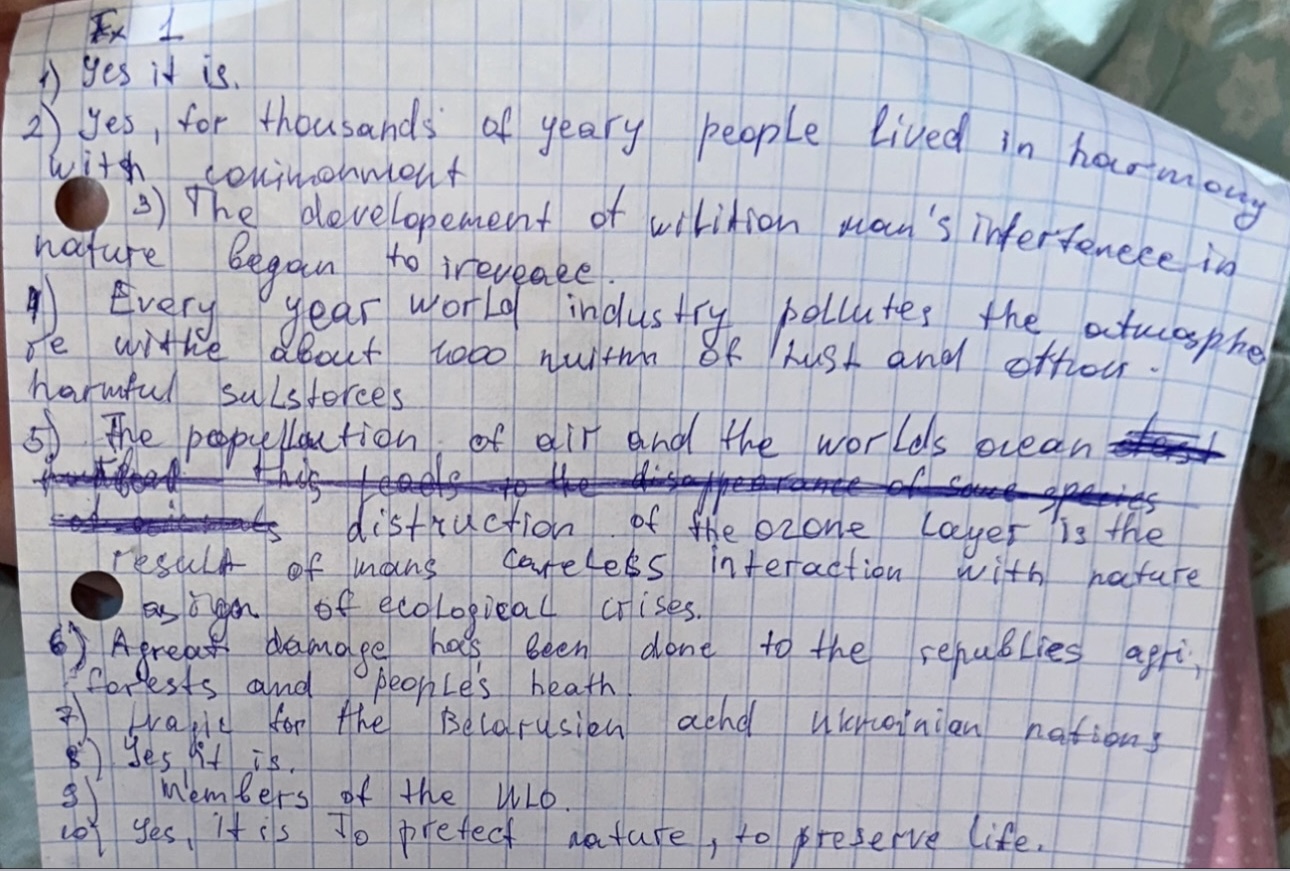 Ex 1
1) Yes it is.
2) Yes, for thousands of yeary people lived in harmony
with
3) The developement of man's in
nature began to
4) Every year world industry pollutes the atmosphe
re withe about 1000 of and
harmful
5) The of air and the worlds ocean
this leads to the disappearance of some species
distruction of the ozone layer is the
result of mans careless interaction with nature
of ecological crises.
6) A great damage has been done to the republies agri,
forests and people's heath.
7) for the Belarusian achd Ukrainian nations
8) Yes it is.
9) Members of the
10) Yes, it is To pretect nature, to preserve life.